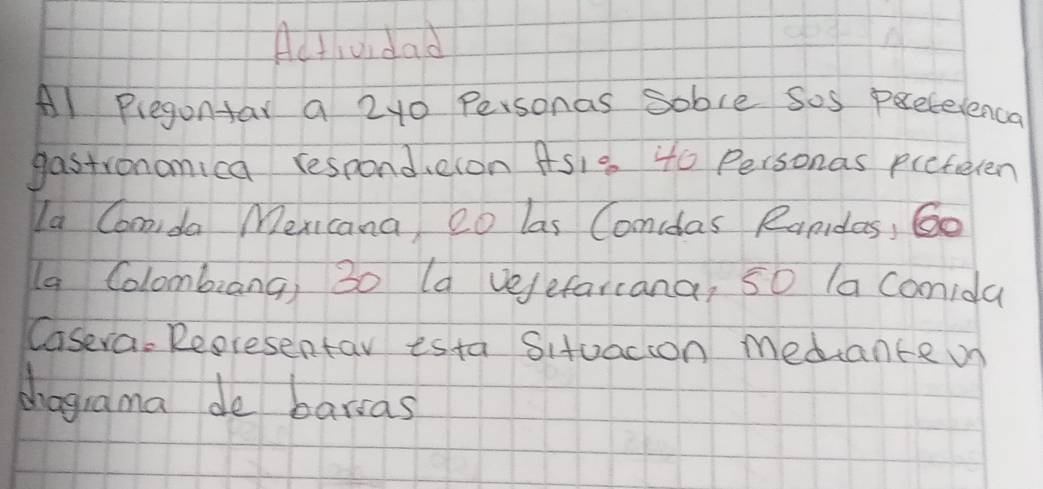 Actividad
Al Pregontar a 240 Personas sobre sos preferenca
gastronomica respondieron Asi: 40 Personas preferen
la Comida Mexicana, 20 las Comidas Rapidas, 60
la Colombiana, 30 la vegetarcana, 50 la comida
Casera. Representar esta Situacion mediante un
diagrama de barras